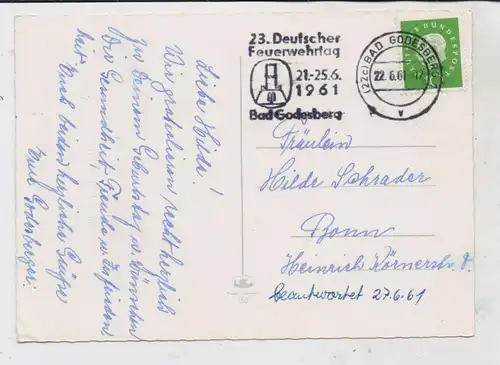 23. Deutscher
Feuerwehrtag
21.-25.6.
1961
Bad Godesberg
(22c) BAD GODESBERG
22.6.61
BUNDESPOST
Liebe Hilde!
Wir gratulieren recht herzlich
zu Deinem Geburtstag u. wünschen
Dir Gesundheit, Freude u. Zufrieden
heit
Euch beiden herzliche Grüße
Eure Godesberger.
Fräulein
Hilde Schrader
Bonn
Heinrich Körnerstr.
beantwortet 27.6.61